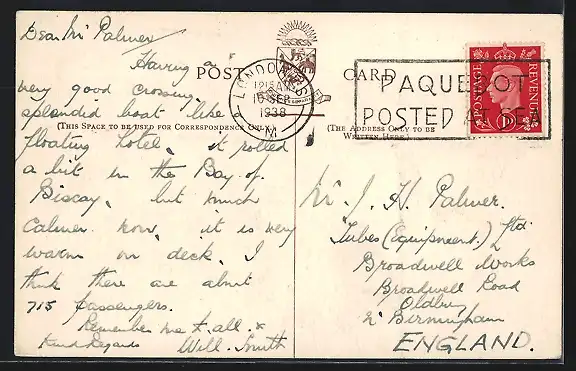 Dear Mr Palmer
Having a
very good crossing
splendid boat like
floating hotel, it rolled
a bit in the Bay of
Biscay, but much
calmer now, it is very
warm on deck. I
think there are about
715 passengers.
Remember me to all. *
Kind Regards Will. Smith
POST CARD
(THIS SPACE TO BE USED FOR CORRESPONDENCE ONLY)
(THE ADDRESS ONLY TO BE
WRITTEN HERE)
LONDON
12 15 AM
10 SEP
1938
PAQUEBOT
POSTED AT SEA
POSTAGE
REVENUE
1D
Mr. J. H. Palmer.
Tubes (Equipment.) Ltd
Broadwell Works
Broadwell Road
Oldbury
Nr Birmingham
ENGLAND.